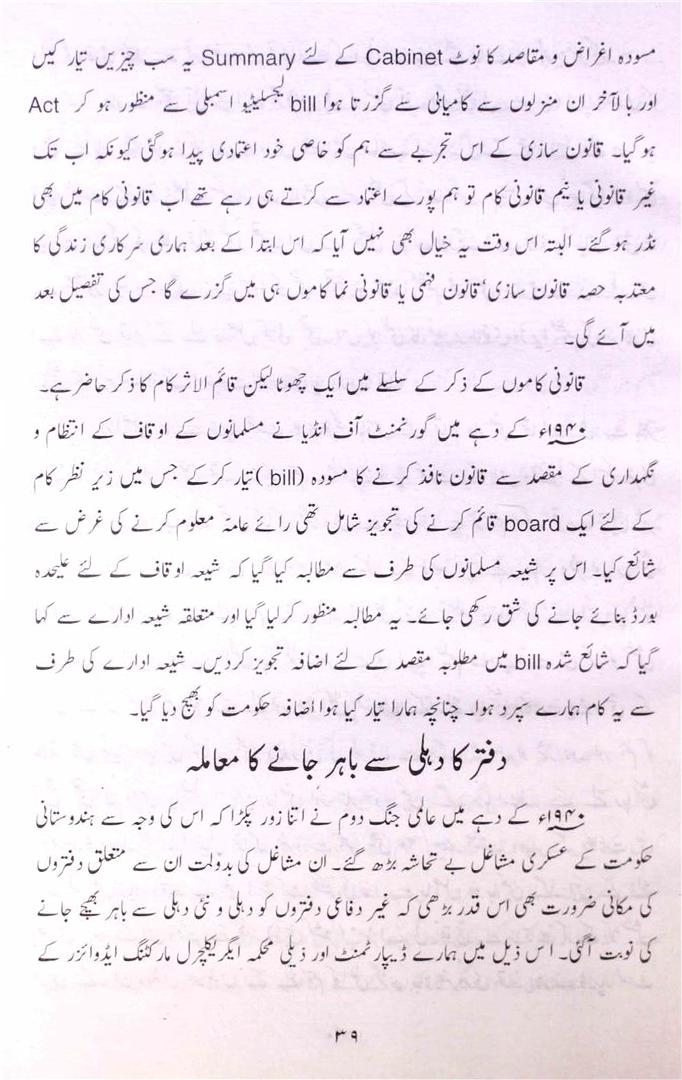 مسودہ اغراض و مقاصد کا نوٹ Cabinet کے لئے Summary یہ سب چیزیں تیار کیں
اور بالآخر ان منزلوں سے کامیابی سے گزرتا ہوا bill لیجسلیٹیو اسمبلی سے منظور ہو کر Act
ہوگیا۔ قانون سازی کے اس تجربے سے ہم کو خاصی خود اعتمادی پیدا ہوگئی کیونکہ اب تک
غیر قانونی یا نیم قانونی کام تو ہم پورے اعتماد سے کرتے ہی رہے تھے اب قانونی کام میں بھی
نڈر ہوگئے۔ البتہ اس وقت یہ خیال بھی نہیں آیا کہ اس ابتدا کے بعد ہماری سرکاری زندگی کا
معتدبہ حصہ قانون سازی‘ قانون فہمی یا قانونی نما کاموں ہی میں گزرے گا جس کی تفصیل بعد
میں آئے گی۔
قانونی کاموں کے ذکر کے سلسلے میں ایک چھوٹا لیکن قائم الاثر کام کا ذکر حاضر ہے۔
۱۹۴۰ء کے دہے میں گورنمنٹ آف انڈیا نے مسلمانوں کے اوقاف کے انتظام و
نگہداری کے مقصد سے قانون نافذ کرنے کا مسودہ (bill) تیار کرکے جس میں زیر نظر کام
کے لئے ایک board قائم کرنے کی تجویز شامل تھی رائے عامہ معلوم کرنے کی غرض سے
شائع کیا۔ اس پر شیعہ مسلمانوں کی طرف سے مطالبہ کیا گیا کہ شیعہ اوقاف کے لئے علیحدہ
بورڈ بنائے جانے کی شق رکھی جائے۔ یہ مطالبہ منظور کرلیا گیا اور متعلقہ شیعہ ادارے سے کہا
گیا کہ شائع شدہ bill میں مطلوبہ مقصد کے لئے اضافہ تجویز کردیں۔ شیعہ ادارے کی طرف
سے یہ کام ہمارے سپرد ہوا۔ چنانچہ ہمارا تیار کیا ہوا اضافہ حکومت کو بھیج دیا گیا۔
دفتر کا دہلی سے باہر جانے کا معاملہ
۱۹۴۰ء کے دہے میں عالمی جنگ دوم نے اتنا زور پکڑا کہ اس کی وجہ سے ہندوستانی
حکومت کے عسکری مشاغل بے تحاشہ بڑھ گئے۔ ان مشاغل کی بدولت ان سے متعلق دفتروں
کی مکانی ضرورت بھی اس قدر بڑھی کہ غیر دفاعی دفتروں کو دہلی و نئی دہلی سے باہر بھیجے جانے
کی نوبت آگئی۔ اس ذیل میں ہمارے ڈیپارٹمنٹ اور ذیلی محکمہ ایگریکلچرل مارکٹنگ ایڈوائزر کے
۳۹